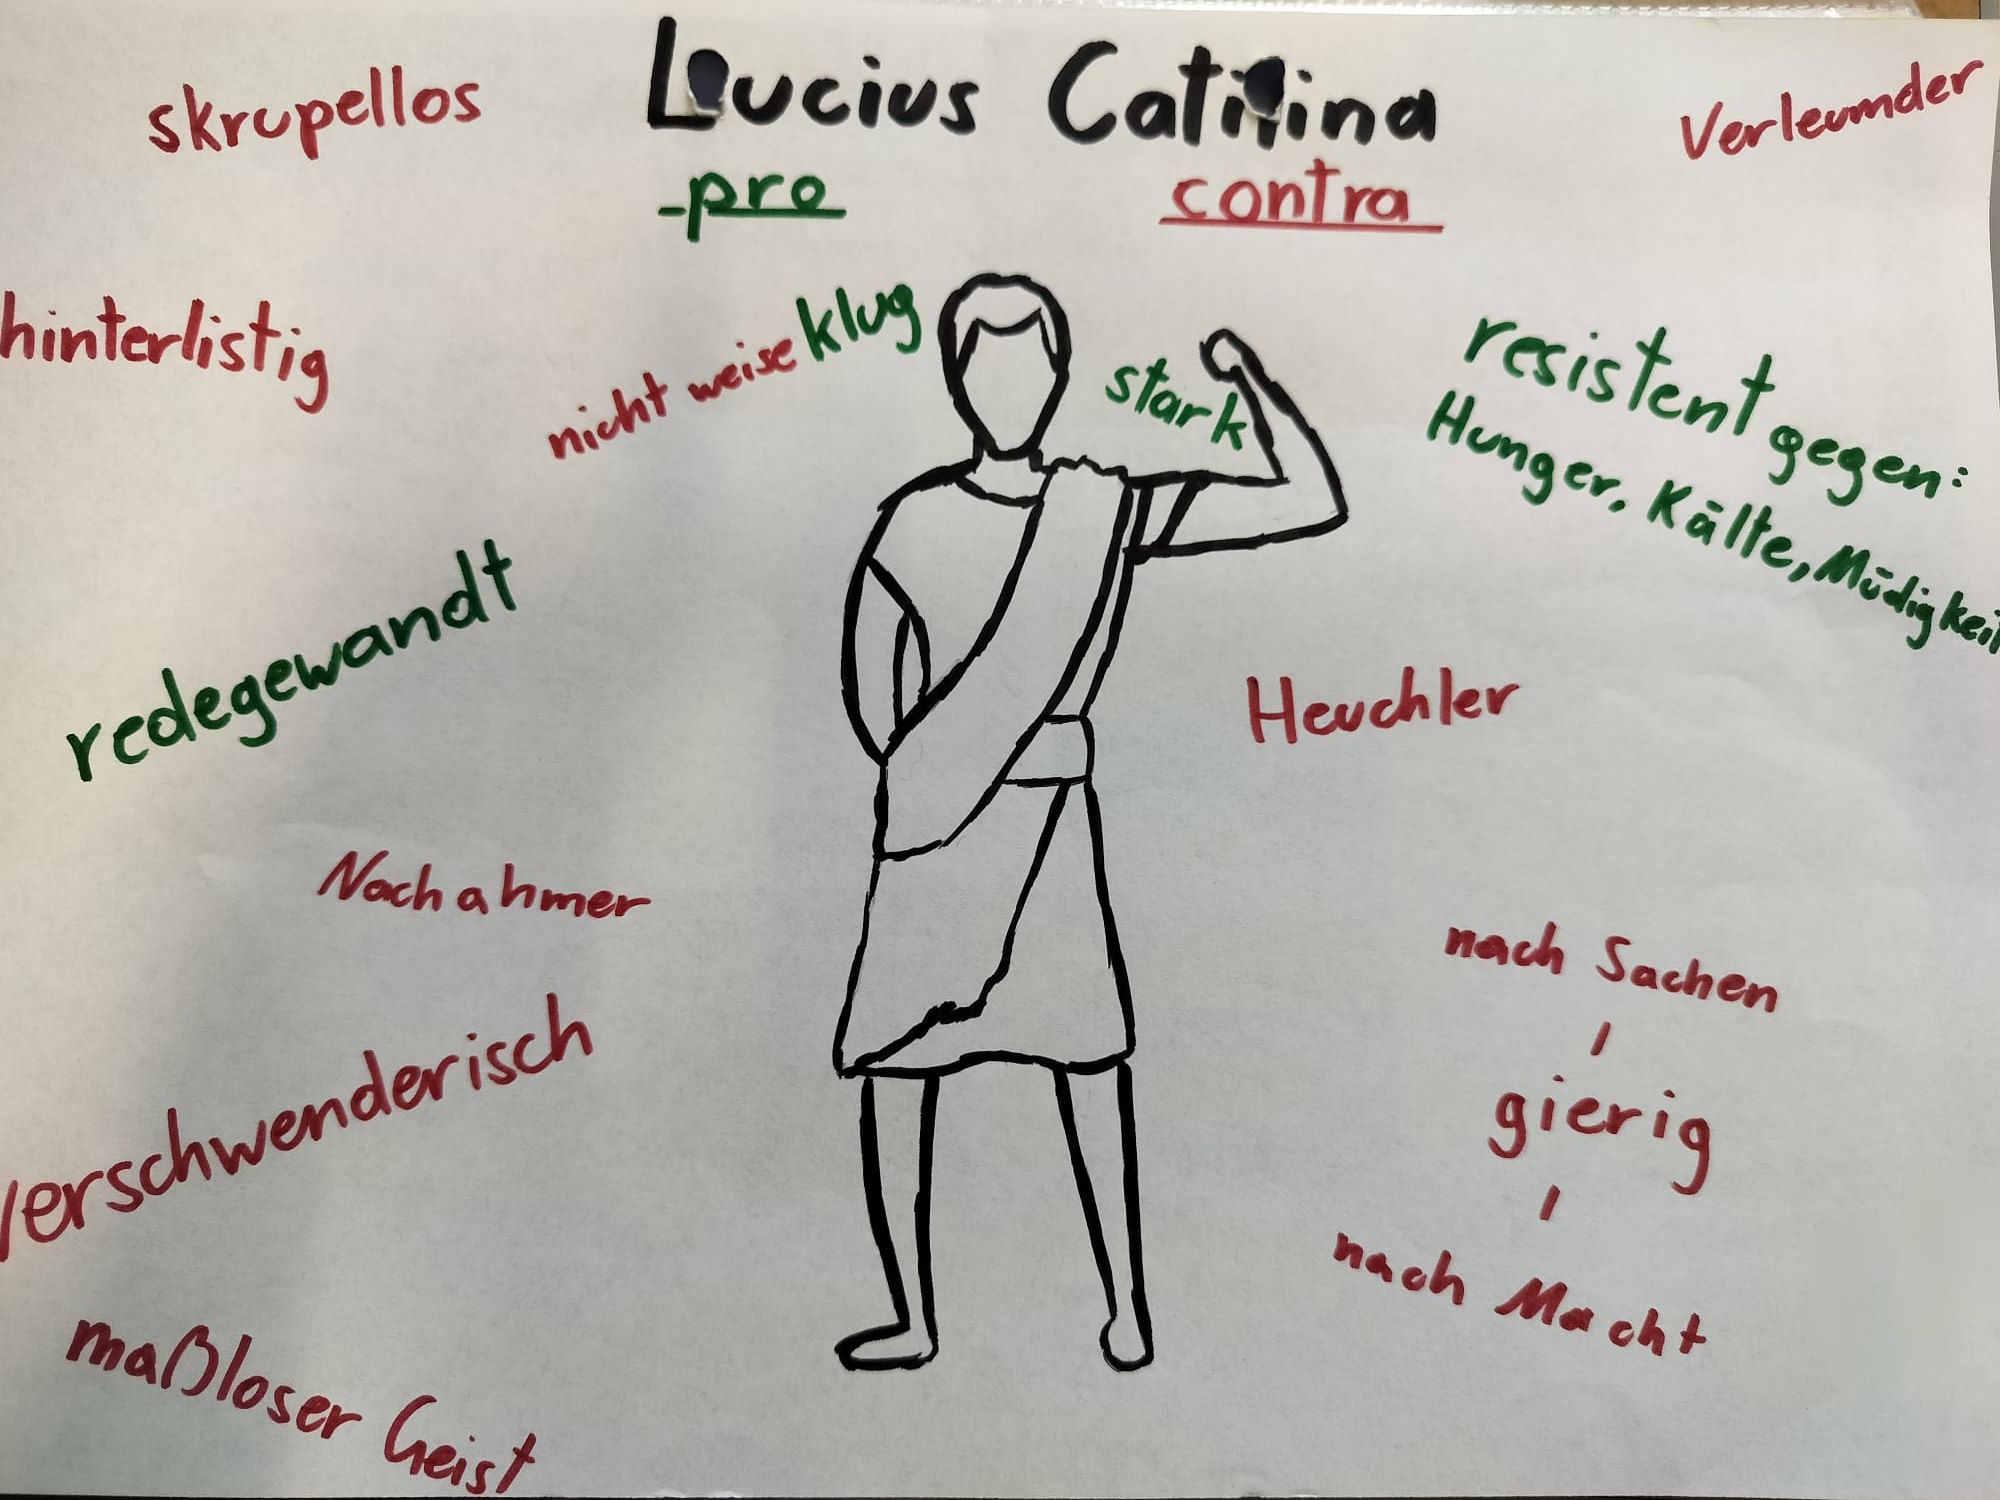 skrupellos
Lucius Catilina
Verleumder
-pro
contra
hinterlistig
nicht weise klug
stark
resistent gegen:
Hunger, Kälte, Müdigkeit
redegewandt
Heuchler
Nachahmer
nach Sachen
gierig
nach Macht
verschwenderisch
maßloser Geist